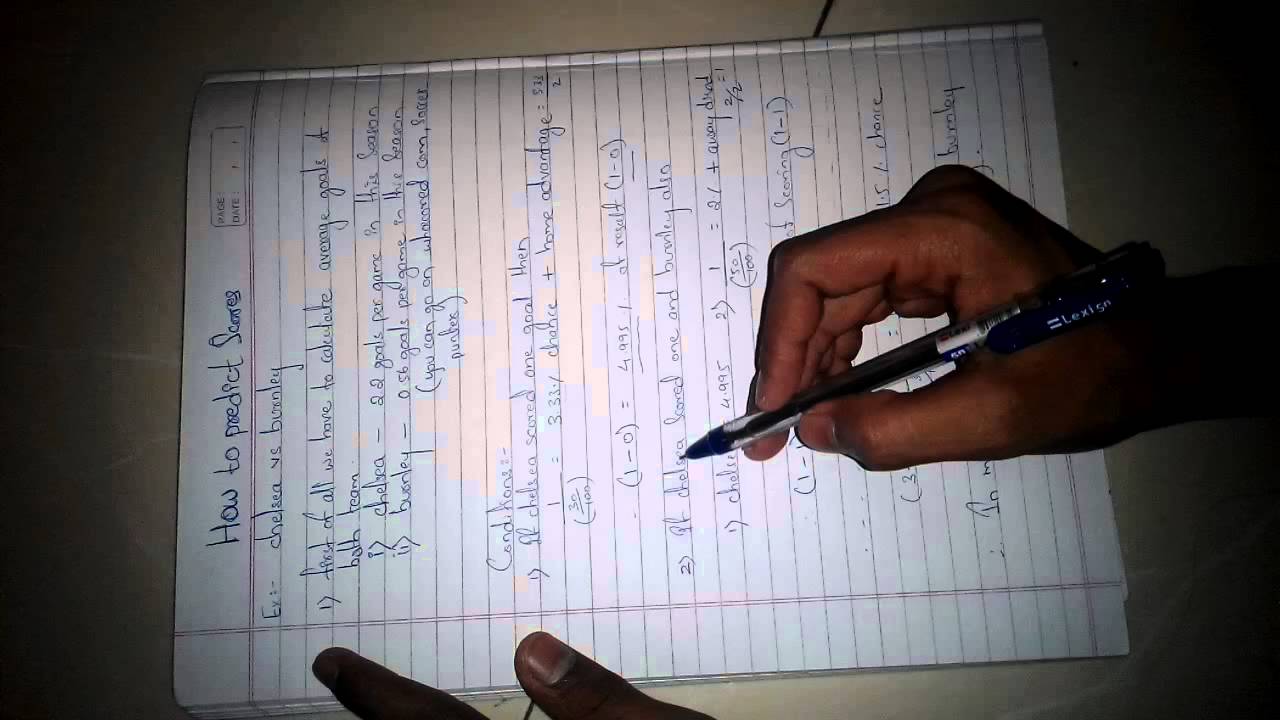 PAGE:
DATE: / /
How to predict Scores
Ex:- chelsea vs burnley
1) first of all we have to calculate average goals of
both team.
i) chelsea - 2.2 goals per game in this season
ii) burnley - 0.56 goals per game in this season
(you can go on whoscored.com, soccer
punter)
Conditions:-
1) If chelsea scored one goal then
1/(30/100) = 3.33% chance + home advantage = 3.33/2
∴ (1-0) = 4.995% of result (1-0)
2) If chelsea scored one and burnley also
1) chelsea 4.995 2) 1/(50/100) = 2% + away disad 2/2=1
(1- of scoring (1-1)
(3- = 1.5% chance
∴ In burnley
=Lexi5n